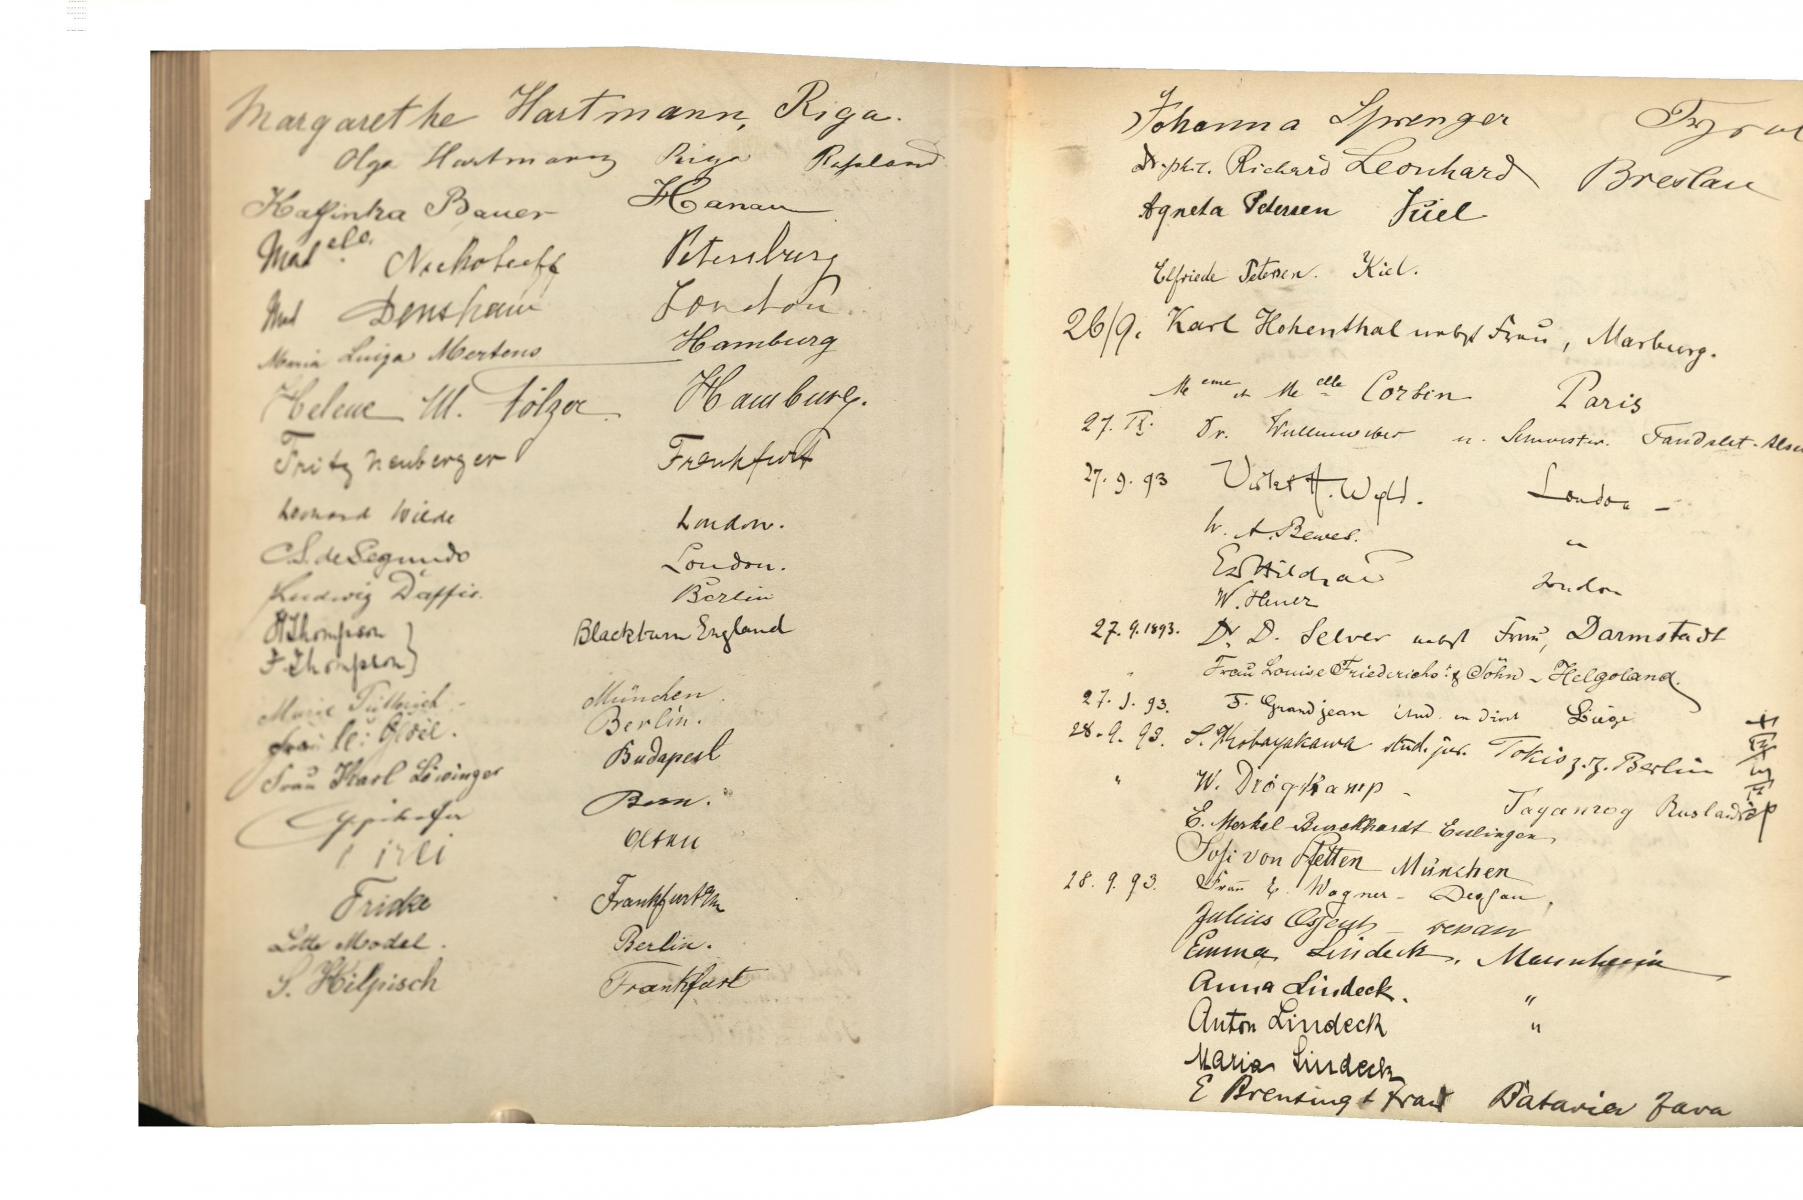 Margarethe Hartmann, Riga.
Olga Hartmann Riga Rußland
Kathinka Bauer Hanau
Petersburg
Densham London.
Maria Luiga Mertens Hamburg
Helene M. Hamburg.
Fritz Neuberger Frankfurt
Leonard Wilde London.
S. de Segundo London.
Ludwig Daffis. Berlin
H Thompson
F. Thompson } Blackburn England
Marie München.
Frau Berlin.
Frau Karl Budapest
Bern.
Olten
Fricke Frankfurt a/M
Lotte Model. Berlin.
S. Hilpisch Frankfurt
Johanna Sprenger Tyrol
Dr. phil. Richard Leonhard Breslau
Agneta Petersen Kiel
Elfriede Petersen. Kiel.
26/9. Karl Hohenthal nebst Frau, Marburg.
Meme et Melle Corbin Paris
27. IX. Dr. Wullenweber u.
27. 9. 93 Violet H. London –
W. A. Bewes. "
London
W. Hener
27. 9. 1893. Dr. D. Selver nebst Frau, Darmstadt
" Frau Louise Friederichs & Sohn – Helgoland.
27. 9. 93. F. Grandjean stud. en droit Liège
28. 9. 93. S. Kobayakawa stud. jur. Tokio z. Z. Berlin
" W. Drögkamp – Taganrog Rusland
E. Merkel-Burckhardt Esslingen
Sofi von Stetten München
28. 9. 93. Frau E. Wagner – Dessau,
Julius
Emma Lindeck, Mannheim
Anna Lindeck. "
Anton Lindeck "
Maria Lindeck
E Brensing + Frau Batavia Java